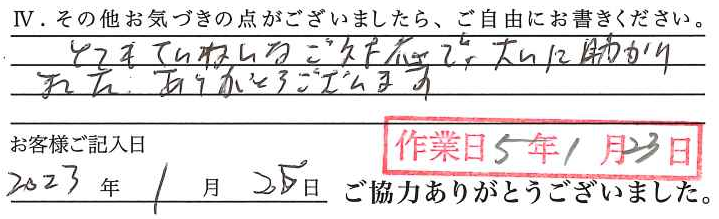 Ⅳ．その他お気づきの点がございましたら、ご自由にお書きください。
とてもていねいなご対応で、大いに助かり
ました。ありがとうございます
お客様ご記入日
作業日5年1月23日
2023年1月25日
ご協力ありがとうございました。